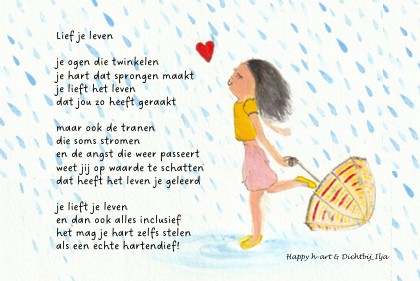 Lief je leven

je ogen die twinkelen
je hart dat sprongen maakt
je lieft het leven
dat jou zo heeft geraakt

maar ook de tranen
die soms stromen
en de angst die weer passeert
weet jij op waarde te schatten
dat heeft het leven je geleerd

je lieft je leven
en dan ook alles inclusief
het mag je hart zelfs stelen
als een echte hartendief!

Happy h-art & Dichtbij_Ilja